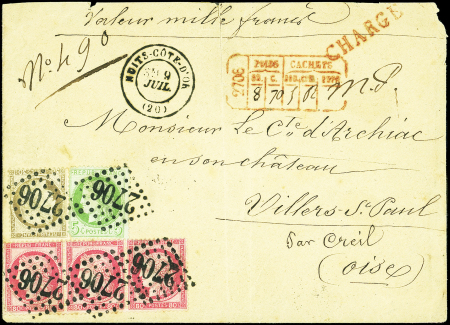 Valeur mille francs
CHARGÉ
N° 490
NUITS-COTE-D'OR
9
JUIL.
(20)
2706
POIDS CACHETS
8
M.P.
Monsieur Le Cte d'Archiac
en son château
Villers St Paul
par Creil
(Oise)
2706 2706
5 C POSTES 5
2706 2706 2706